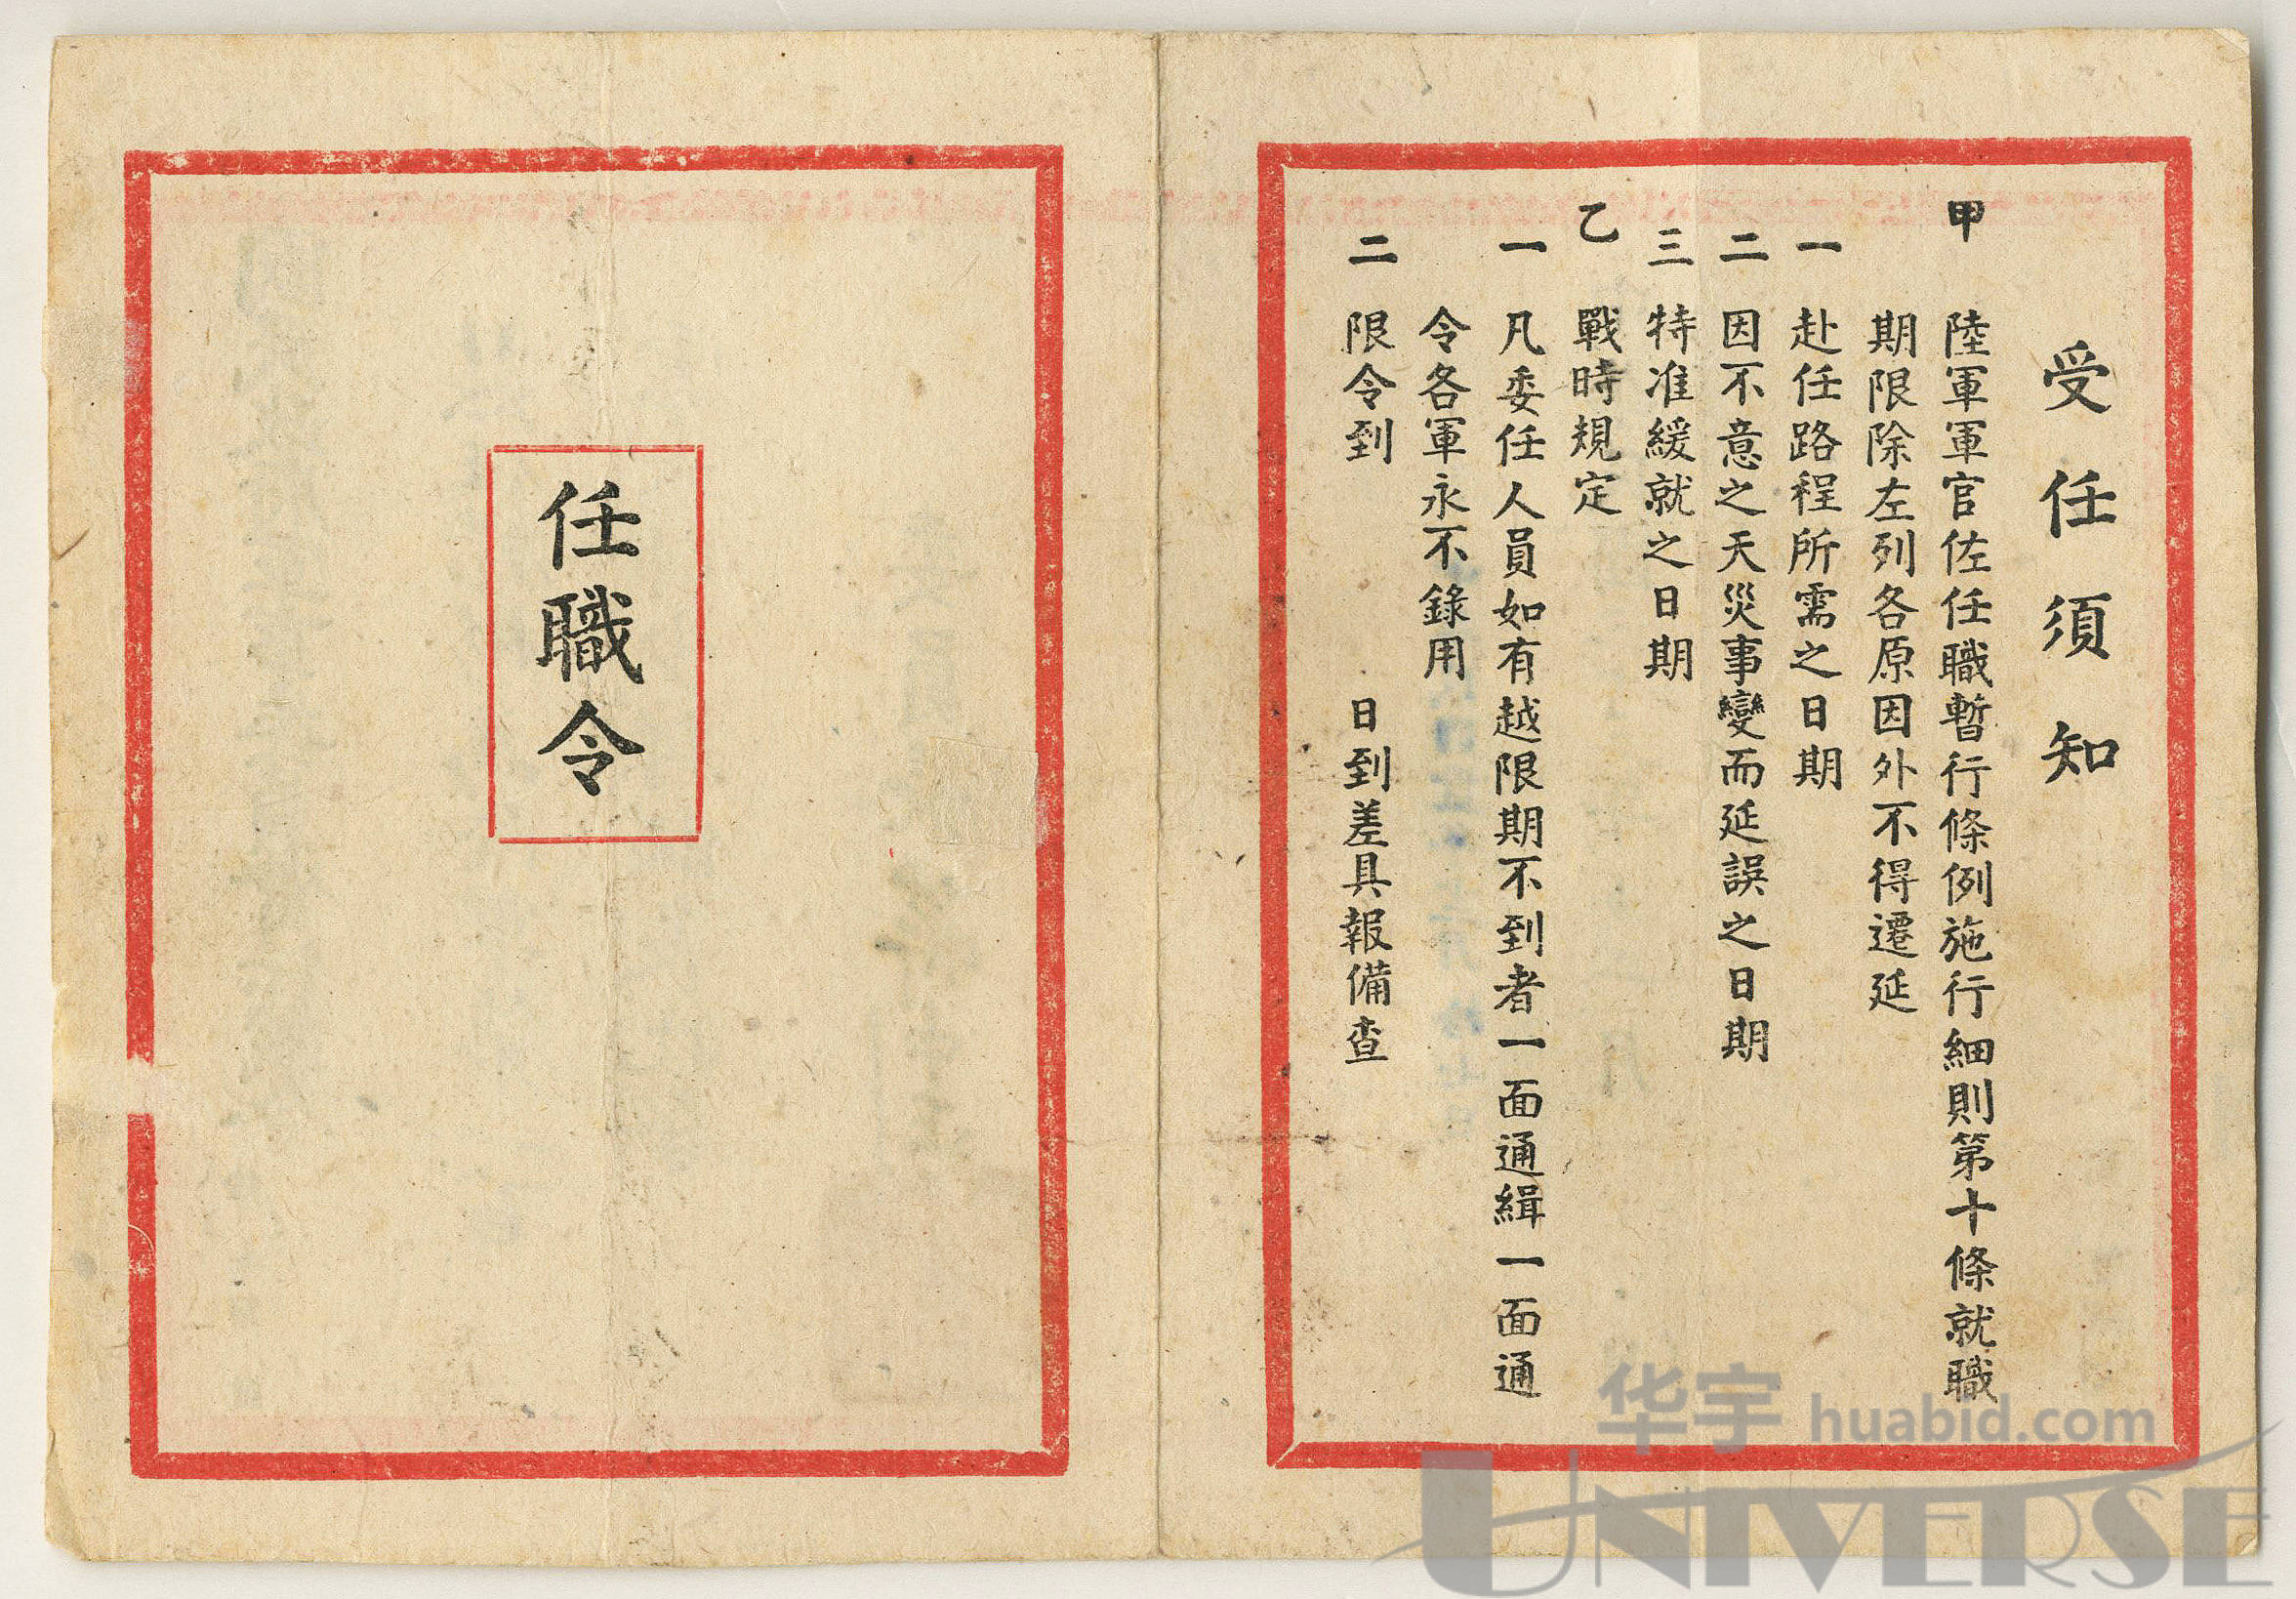 受任須知
甲 陸軍軍官佐任職暫行條例施行細則第十條就職
期限除左列各原因外不得遷延
一 赴任路程所需之日期
二 因不意之天災事變而延誤之日期
三 特准緩就之日期
乙 戰時規定
一 凡委任人員如有越限期不到者一面通緝一面通
令各軍永不錄用
二 限令到 日到差具報備查
任職令
华宇 huabid.com
UNIVERSE